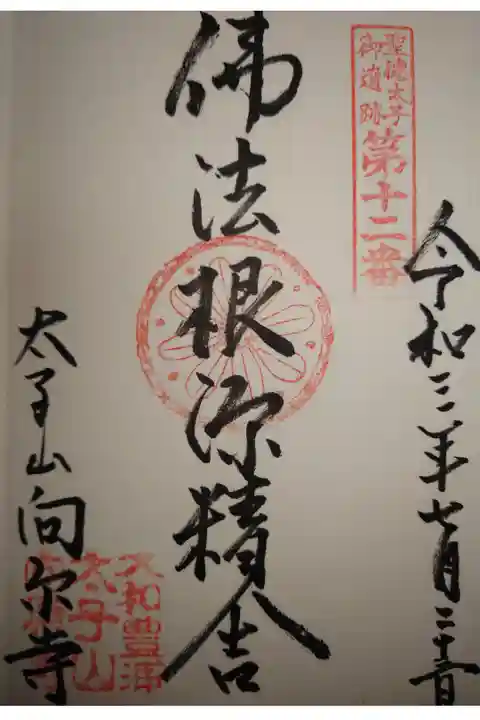 聖徳太子
御遺跡
第十二番
令和三年七月二十二日
佛法根源精舎
太子山向原寺
大和豊浦
太子山
向原寺